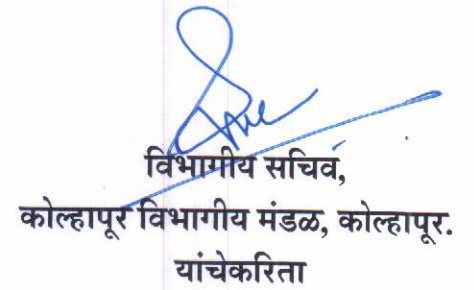 विभागीय सचिव,
कोल्हापूर विभागीय मंडळ, कोल्हापूर.
यांचेकरिता